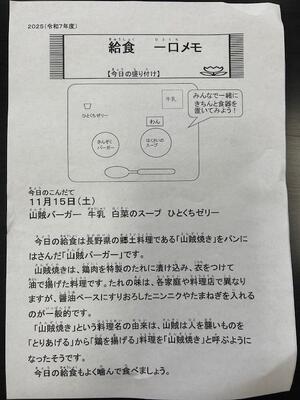 2025(令和7年度)
給食 一口メモ
【今日の盛り付け】
牛乳
ひとくちゼリー
わん
さんぞく
バーガー
はくさいの
スープ
みんなで一緒に
きちんと食器を
置いてみよう!
今日のこんだて
11月15日(土)
山賊バーガー 牛乳 白菜のスープ ひとくちゼリー
今日の給食は長野県の郷土料理である「山賊焼き」をパンに
はさんだ「山賊バーガー」です。
山賊焼きは、鶏肉を特製のたれに漬け込み、衣をつけて
油で揚げた料理です。たれの味は、各家庭や料理店で異なり
ますが、醤油ベースにすりおろしたニンニクやたまねぎを入れる
のが一般的です。
「山賊焼き」という料理名の由来は、山賊は人を襲いものを
「とりあげる」から「鶏を揚げる」料理を「山賊焼き」と呼ぶように
なったそうです。
今日の給食もよく噛んで食べましょう。